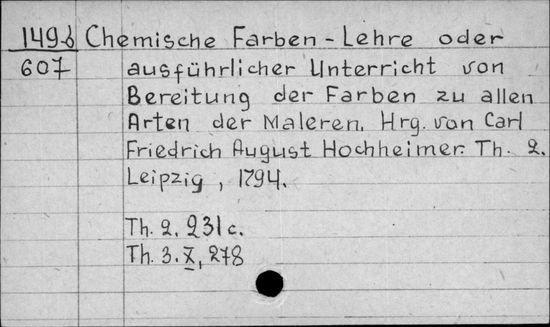 149b Chemische Farben-Lehre oder
607 ausführlicher Unterricht von
Bereitung der Farben zu allen
Arten der Maleren. Hrg. von Carl
Friedrich August Hochheimer. Th. 2.
Leipzig, 1794.
Th. 2. 231 c.
Th. 3. X, 278